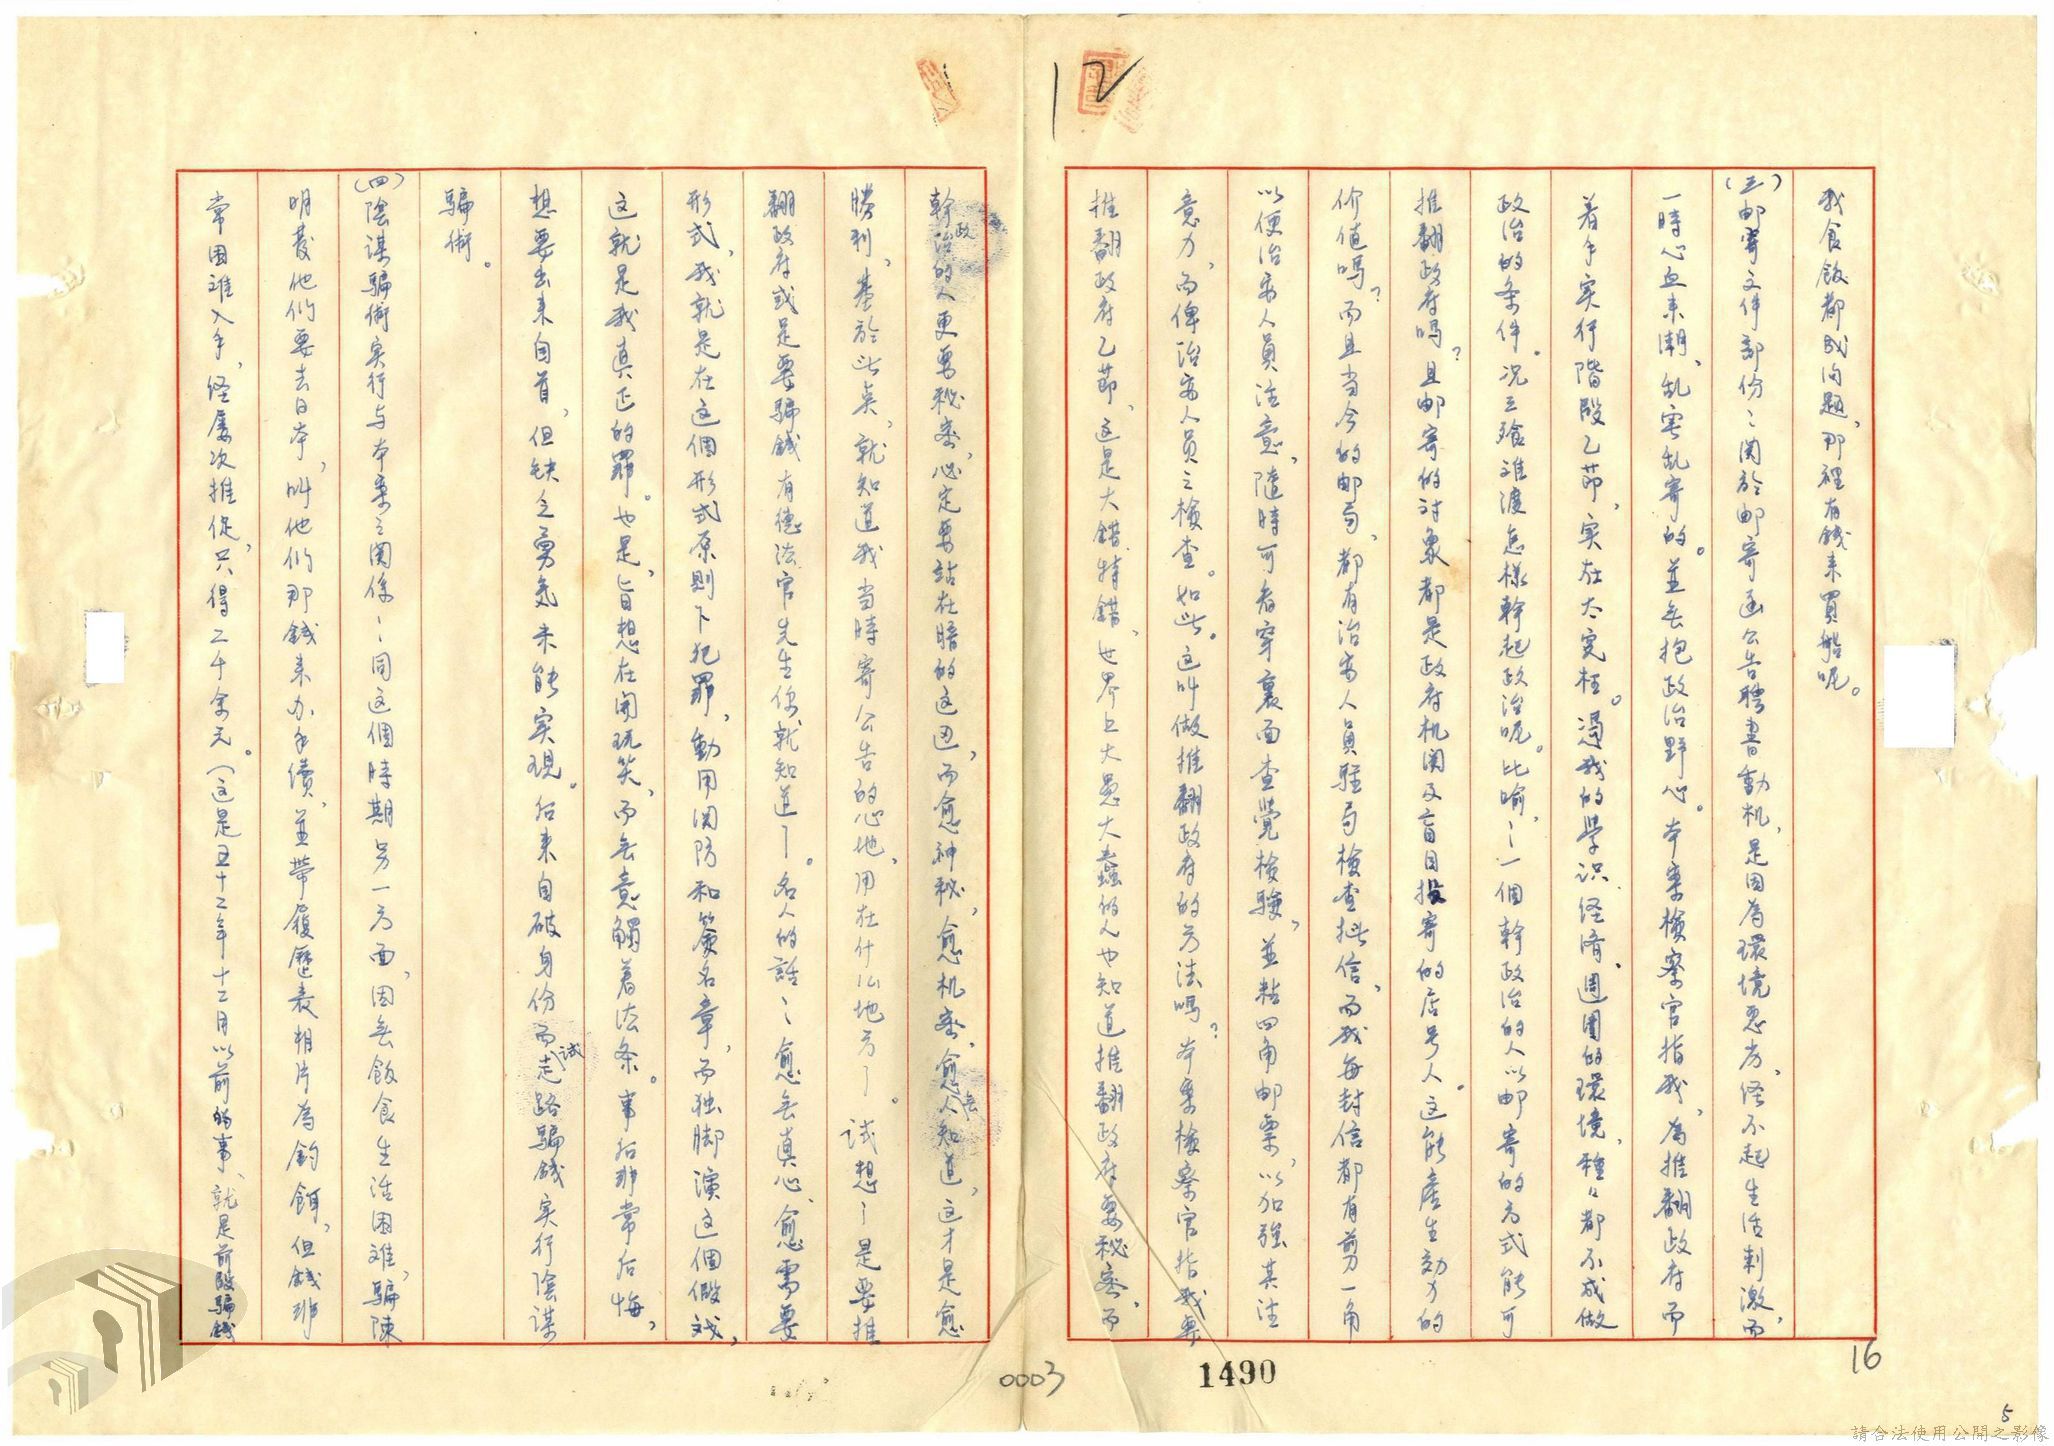 12
我食飯都成问題，那裡有錢来買船呢。
(三)邮寄文件部份：関於邮寄函公告聘書動机，是因為環境惡劣，怪不起生活刺激，而
一時心血来潮，乱寄乱寄的。並無抱政治野心。本案檢察官指我，為推翻政府而
着手实行階段乙節，实在太寃枉。憑我的學识、怪濟、週圍的環境，種々都不成做
政治的条件。况三飱难渡怎樣幹起政治呢。比喻：一個幹政治的人以邮寄的方式能可
推翻政府吗？且邮寄的対象都是政府机関及盲目投寄的店号人。这能產生効力的
价值嗎？而且当今的邮局，都有治安人員駐局檢查批信，而我每封信都有剪一角
以便治安人員注意，隨時可看穿裏面查覺檢驗，並粘四角邮票，以加強其注
意力，而俾治安人員之檢查。如此。这叫做推翻政府的方法嗎？本案檢察官指我要
推翻政府乙節，这是大錯特錯，世界上大愚大蠢的人也知道推翻政府要秘密，而
幹政治的人更要秘密，必定要站在暗的这边，而愈神秘，愈机密，愈無人知道，这才是愈
勝利，基於此奌，就知道我当時寄公告的心地，用在什么地方！。試想！是要推
翻政府或是要騙錢有德法官先生你就知道！。名人的話：愈無真心，愈需要
形式，我就是在这個形式原則下犯罪，動用関防和簽名章，而独脚演这個假戏，
这就是我真正的罪。也是，旨想在開玩笑，而無意觸着法条。事后非常后悔，
想要出来自首，但缺乏勇気未能实現。后来自破身份而試走路騙錢实行陰谋
騙術。
(四)陰谋騙術实行与本案之関係：同这個時期另一方面，因無飯食生活困难，騙陳
明發他们要去日本，叫他们那錢来办手續，並带履歷表相片為釣餌，但錢非
常困难入手，怪屡次推促，只得二千余元。(这是五十二年十二月以前的事、就是前段騙錢
0003
1490
16
5
請合法使用公開之影像